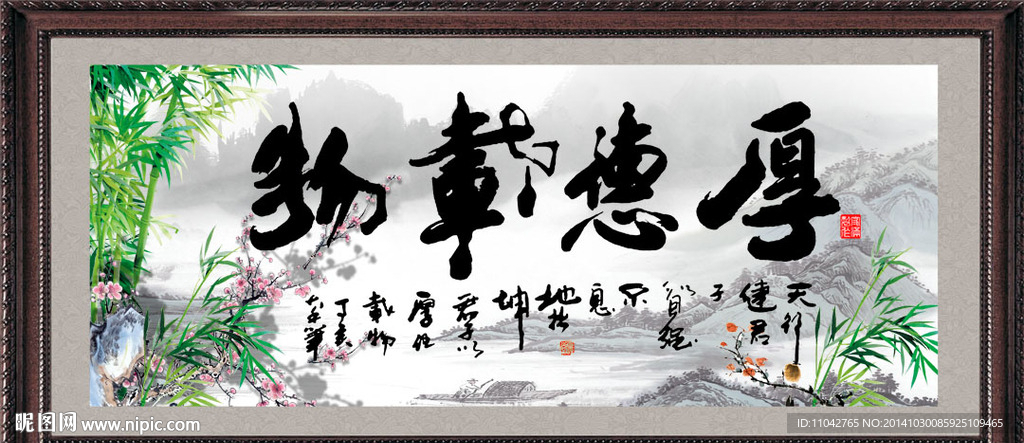 厚德載物
天行
健君
子
以自强
不
息
地势
坤
君子以
厚德
載物
丁亥
昵图网 www.nipic.com
ID:11042765 NO:20141030085925109465